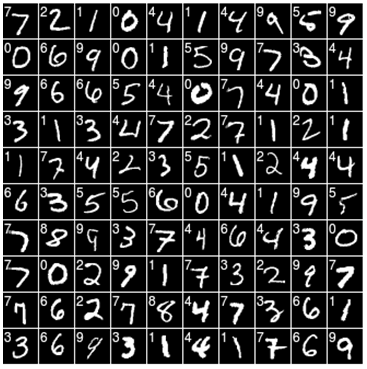 7 7 2 2 1 1 0 0 4 4 1 1 4 4 9 9 5 5 9 9
0 0 6 6 9 9 0 0 1 1 5 5 9 9 7 7 3 3 4 4
9 9 6 6 6 6 5 5 4 4 0 0 7 7 4 4 0 0 1 1
3 3 1 1 3 3 4 4 7 7 2 2 7 7 1 1 2 2 1 1
1 1 7 7 4 4 2 2 3 3 5 5 1 1 2 2 4 4 4 4
6 6 3 3 5 5 5 5 6 6 0 0 4 4 1 1 9 9 5 5
7 7 8 8 9 9 3 3 7 7 4 4 6 6 4 4 3 3 0 0
7 7 0 0 2 2 9 9 1 1 7 7 3 3 2 2 9 9 7 7
7 7 6 6 2 2 7 7 8 8 4 4 7 7 3 3 6 6 1 1
3 3 6 6 9 9 3 3 1 1 4 4 1 1 7 7 6 6 9 9